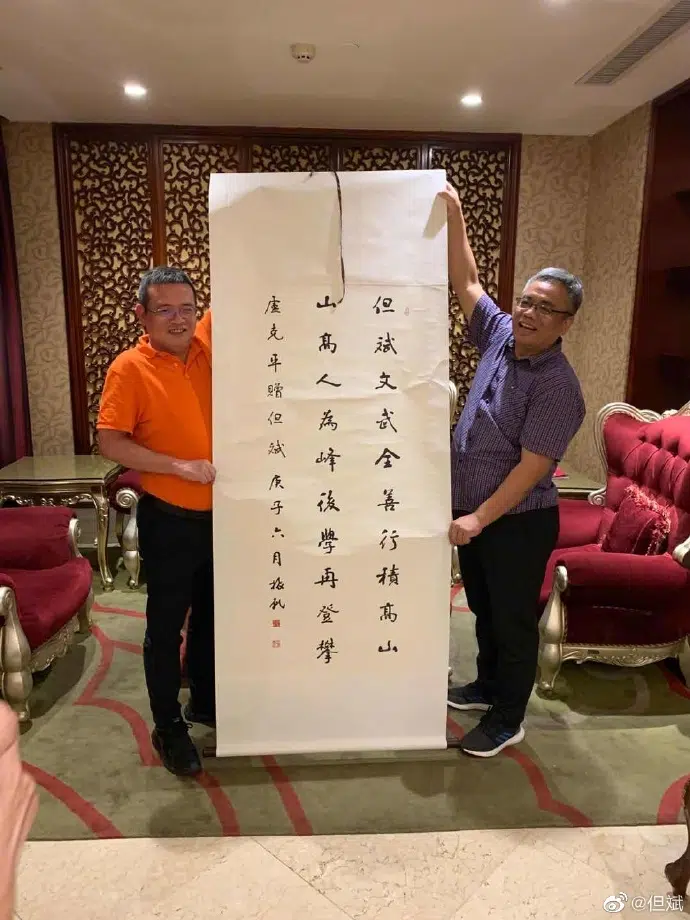 但斌文武全善行積高山
山高人為峰後學再登攀
盧克平贈但斌庚子六月
@但斌